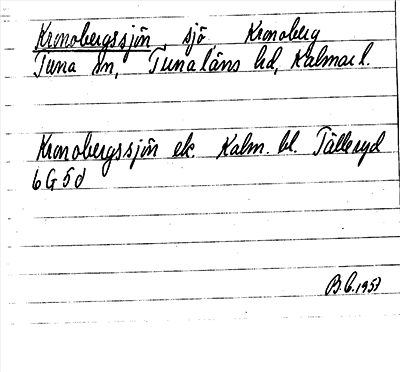 Kronobergssjön, sjö, Kronoberg
Tuna sn, Tunaläns hd, Kalmar l.
Kronobergssjön ek. Kalm. bl. Tälleryd
6 G 5 d
B.C. 1957